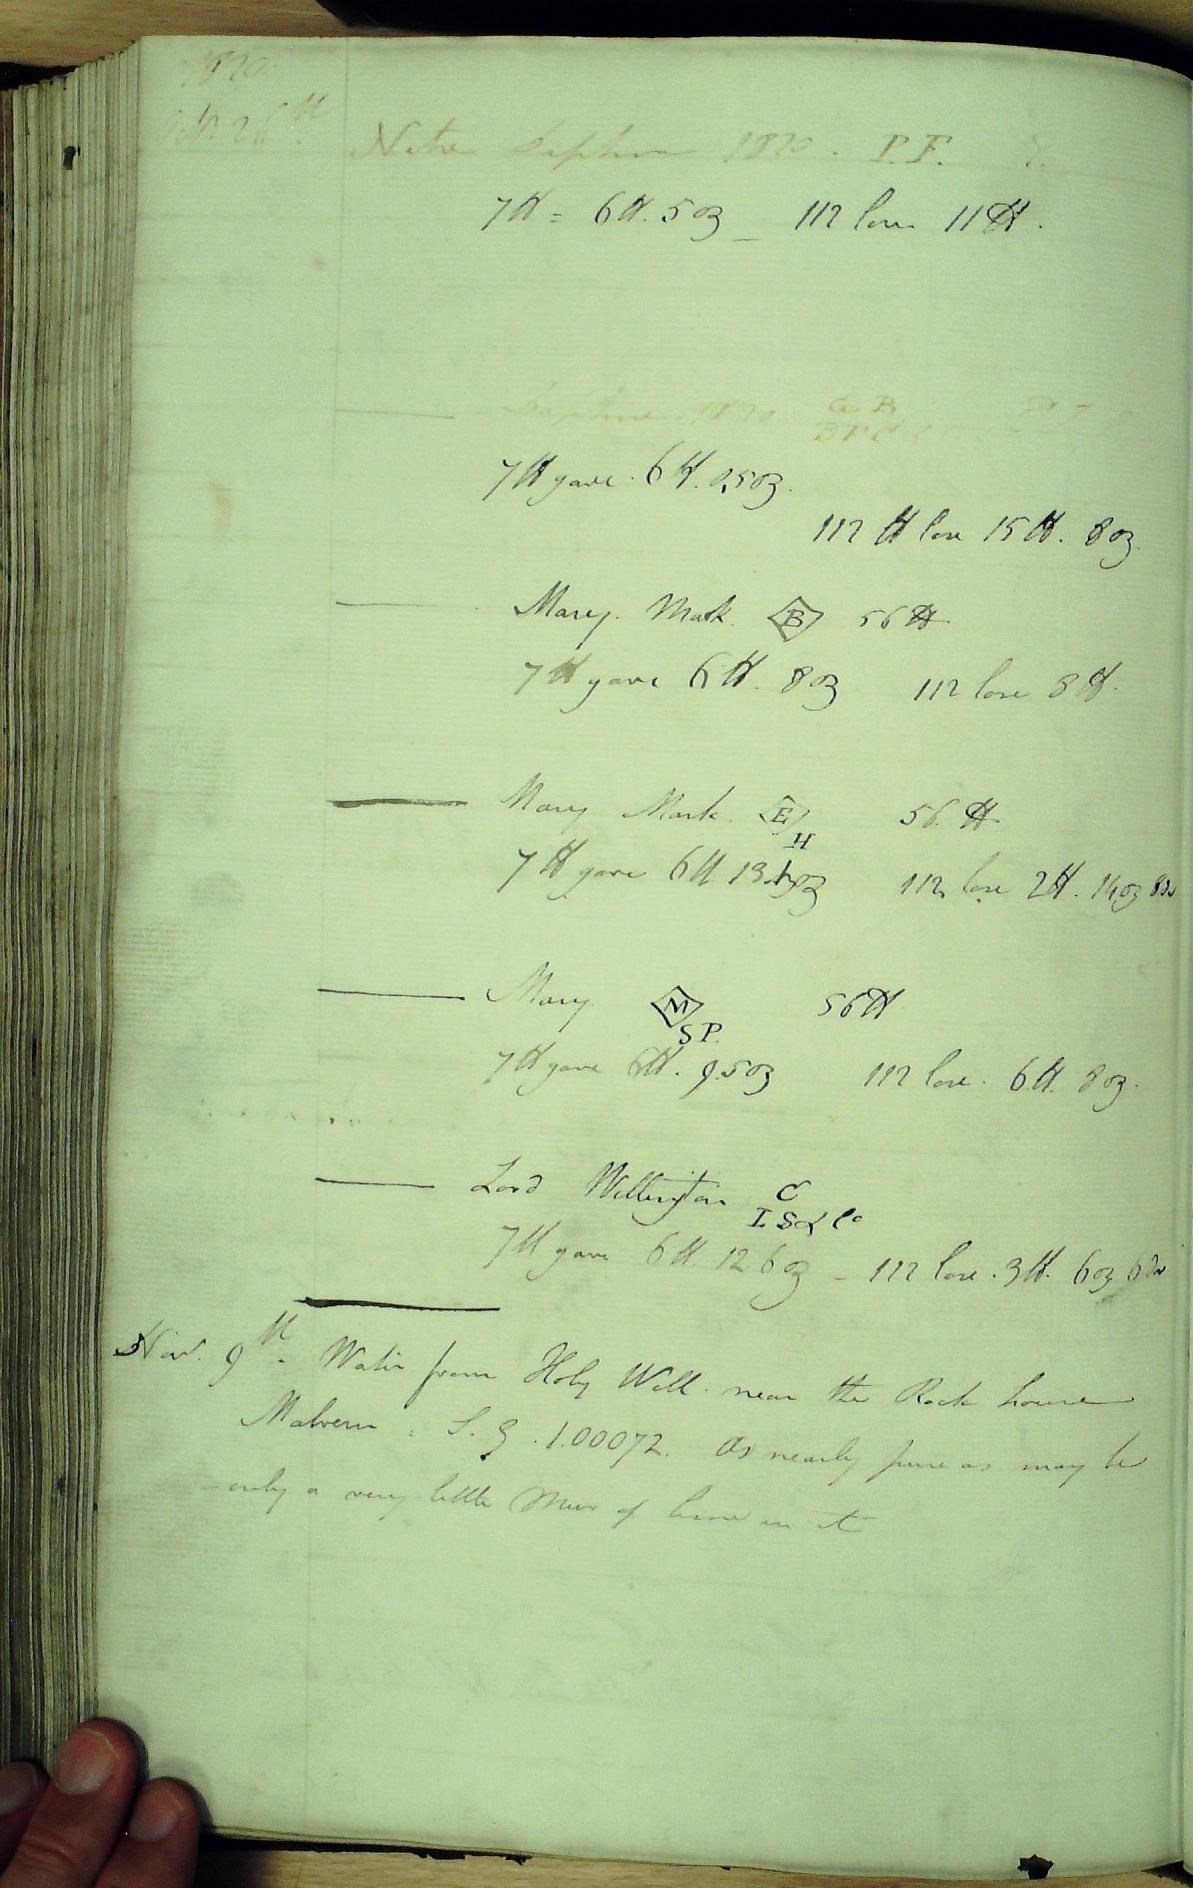 1820
Oct. 26th
Nitre Saphira 1820. P.F.
7 lb = 6 lb. 5 oz _ 112 lose 11 lb.
1820 G B
7 lb gave 6 lb. 0.5 oz.
112 lb lose 15 lb. 8 oz.
Mary. Mark. B 56 lb
7 lb gave 6 lb. 8 oz 112 lose 8 lb.
Mary Mark. E 56 lb
H
7 lb gave 6 lb 13. oz 112 lose 2 lb. 14 oz 8 dr
Mary M 56 lb
S P.
7 lb gave 6 lb. 9.5 oz 112 lose. 6 lb. 8 oz.
Lord Wellington C
I S & Co
7 lb gave 6 lb. 12.6 oz _ 112 lose. 3 lb. 6 oz 6 dr
Nov. 9th. Water from Holy Well near the Rock house
Malvern. S. G. 1.00072. As nearly pure as may be
- only a very little Mur of lime in it